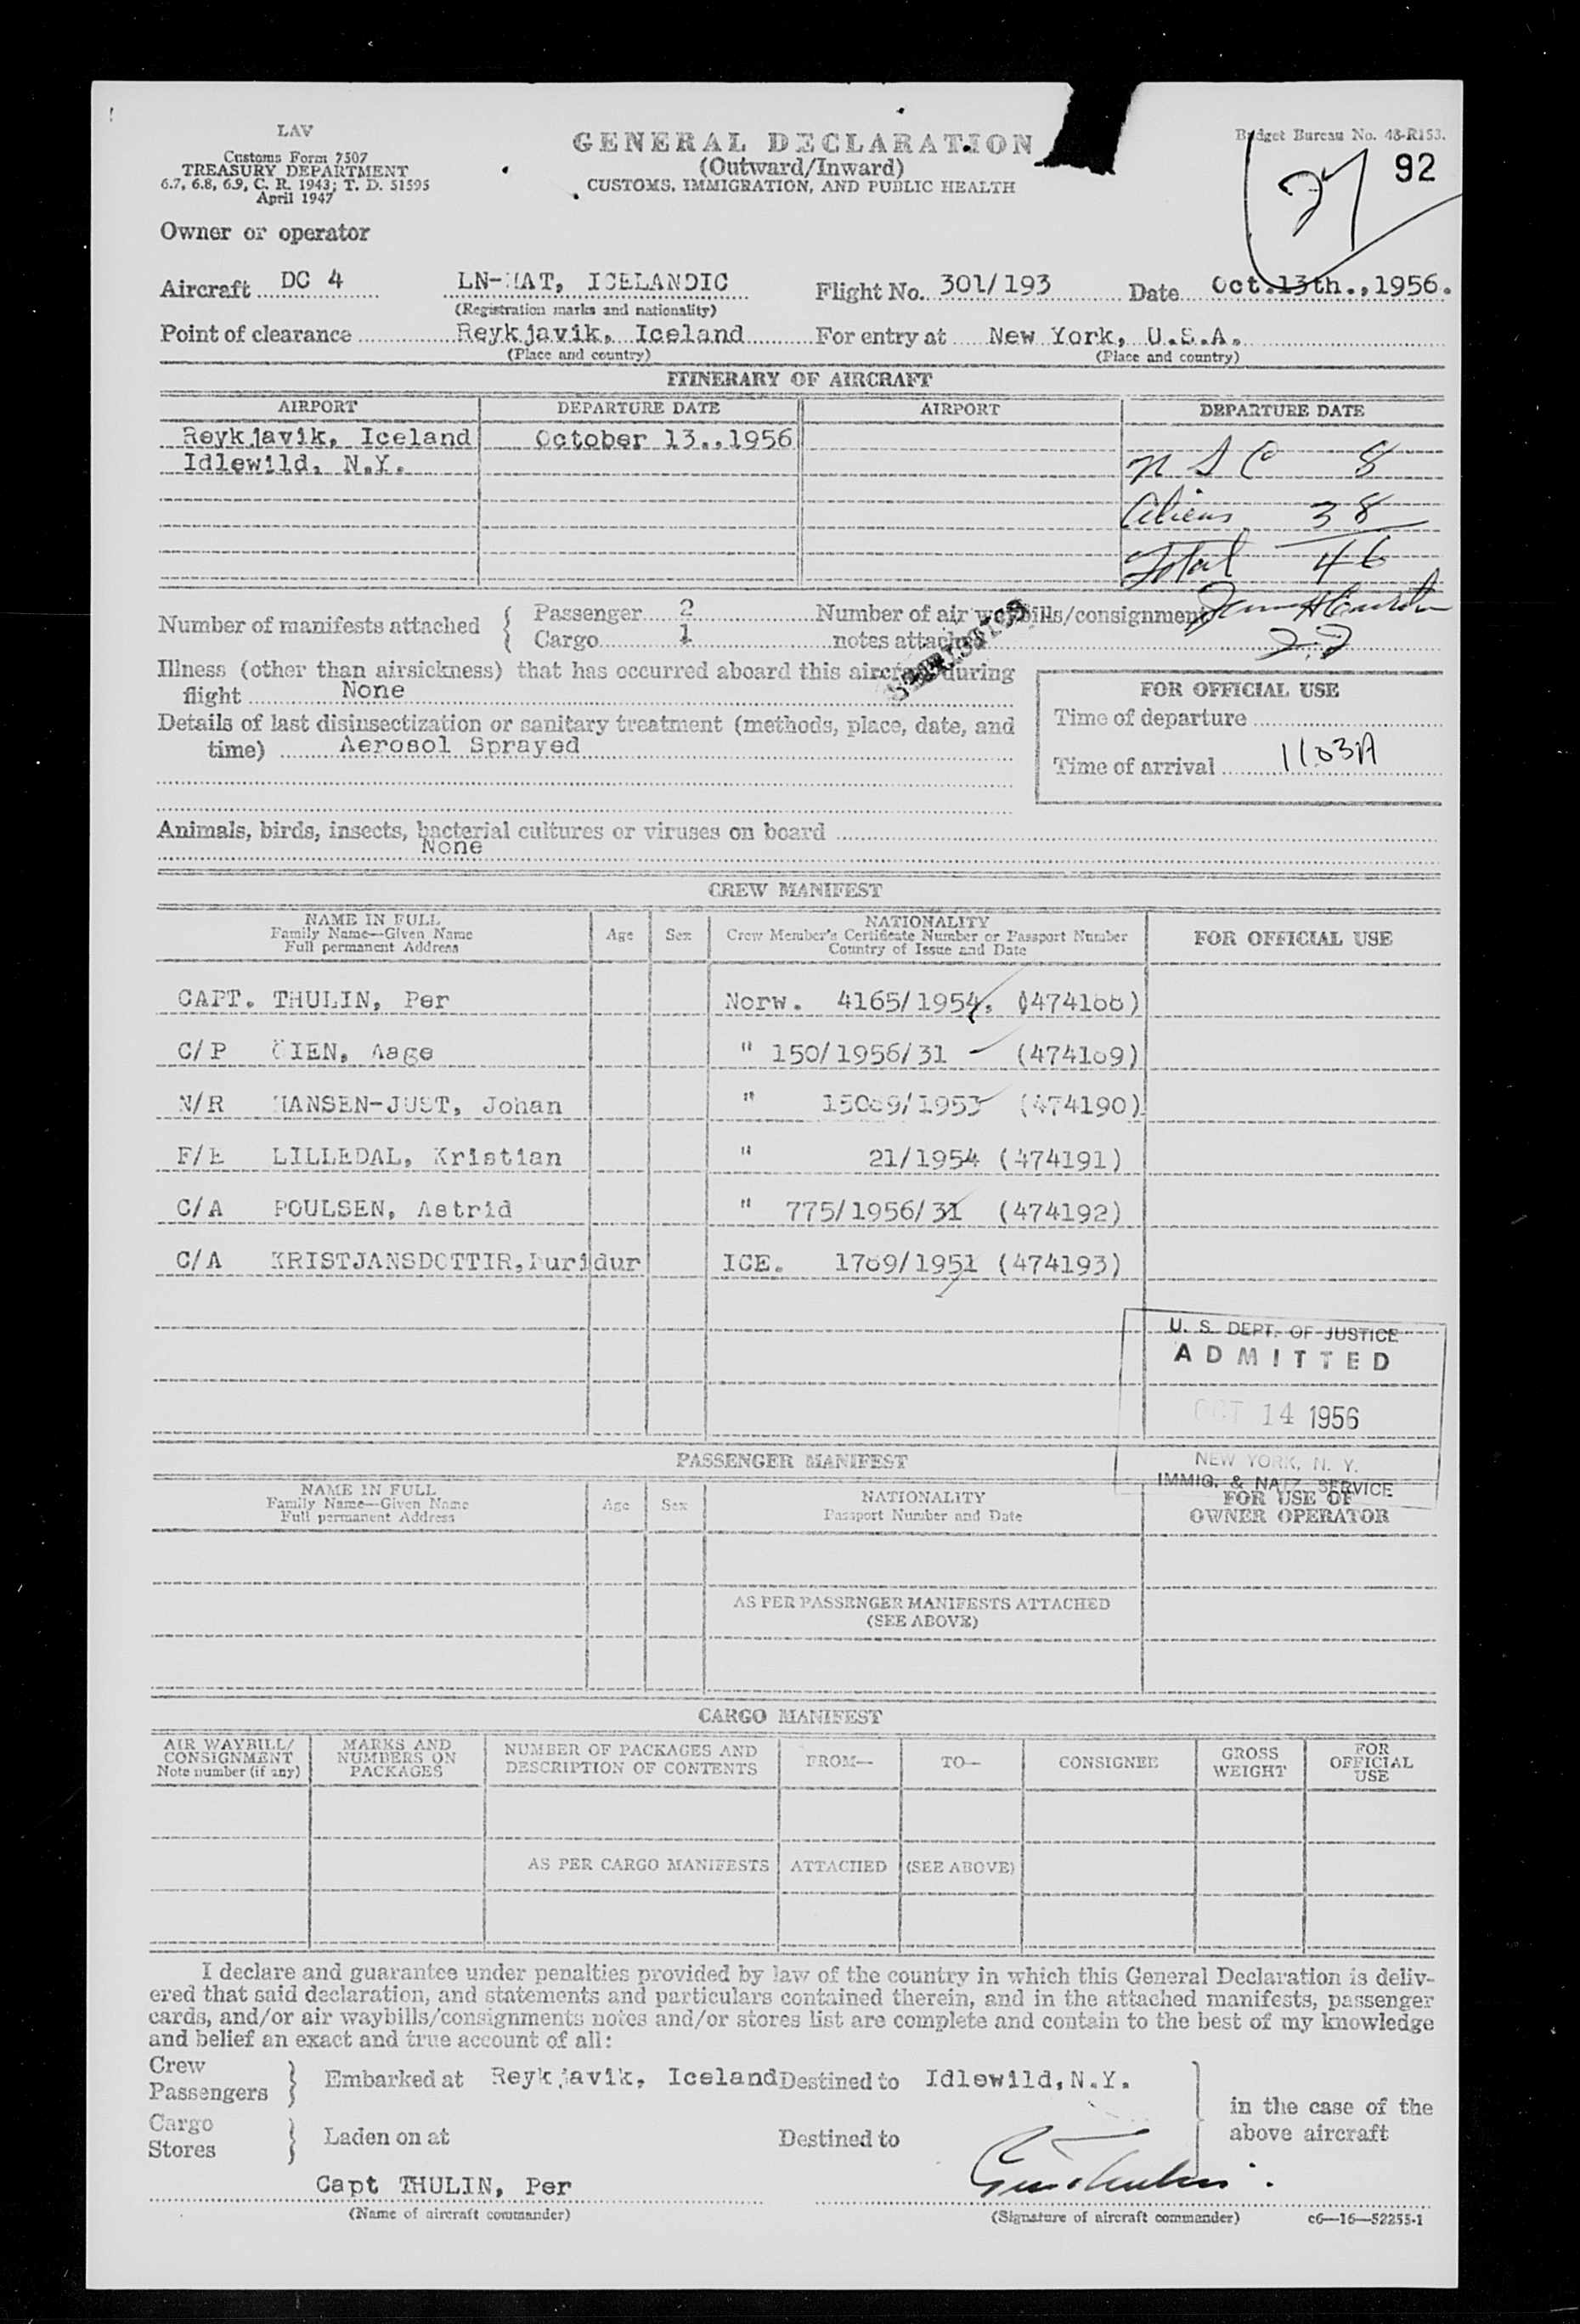 LAV
Customs Form 7507
TREASURY DEPARTMENT
6.7, 6.8, 6.9, C. R. 1943; T. D. 51595
April 1947
GENERAL DECLARATION
(Outward/Inward)
CUSTOMS, IMMIGRATION, AND PUBLIC HEALTH
Budget Bureau No. 48-R153.
27 92
Owner or operator
Aircraft DC 4 LN- ICELANDIC Flight No. 301/193 Date Oct.13th.,1956.
(Registration marks and nationality)
Point of clearance Reykjavik, Iceland For entry at New York, U.S.A.
(Place and country) (Place and country)
ITINERARY OF AIRCRAFT
AIRPORT DEPARTURE DATE AIRPORT DEPARTURE DATE
Reykjavik, Iceland October 13.,1956
Idlewild, N.Y.
8
Aliens 38
Total 46
Number of manifests attached { Passenger 2 Number of air waybills/consignment
Cargo 1 notes attached
Illness (other than airsickness) that has occurred aboard this aircraft during
flight None
Details of last disinsectization or sanitary treatment (methods, place, date, and
time) Aerosol Sprayed
FOR OFFICIAL USE
Time of departure
Time of arrival 1103A
Animals, birds, insects, bacterial cultures or viruses on board
None
CREW MANIFEST
NAME IN FULL
Family Name—Given Name
Full permanent Address
Age Sex
NATIONALITY
Crew Member's Certificate Number or Passport Number
Country of Issue and Date
FOR OFFICIAL USE
CAPT. THULIN, Per Norw. 4165/1954.
C/P ÖIEN, Aage " 150/1956/31 (474189)
N/R HANSEN-JUST, Johan " (474190)
F/E LILLEDAL, Kristian " 21/1954 (474191)
C/A POULSEN, Astrid " 775/1956/31 (474192)
C/A KRISTJANSDOTTIR, ICE. 1769/1951 (474193)
U. S. DEPT. OF JUSTICE
ADMITTED
OCT 14 1956
NEW YORK, N. Y.
IMMIG. & NATZ. SERVICE
PASSENGER MANIFEST
NAME IN FULL
Family Name—Given Name
Full permanent Address
Age Sex
NATIONALITY
Passport Number and Date
FOR USE OF
OWNER OPERATOR
AS PER PASSENGER MANIFESTS ATTACHED
(SEE ABOVE)
CARGO MANIFEST
AIR WAYBILL/
CONSIGNMENT
Note number (if any)
MARKS AND
NUMBERS ON
PACKAGES
NUMBER OF PACKAGES AND
DESCRIPTION OF CONTENTS
FROM— TO— CONSIGNEE
GROSS
WEIGHT
FOR
OFFICIAL
USE
AS PER CARGO MANIFESTS ATTACHED (SEE ABOVE)
I declare and guarantee under penalties provided by law of the country in which this General Declaration is deliv-
ered that said declaration, and statements and particulars contained therein, and in the attached manifests, passenger
cards, and/or air waybills/consignments notes and/or stores list are complete and contain to the best of my knowledge
and belief an exact and true account of all:
Crew
Passengers } Embarked at Reykjavik, Iceland Destined to Idlewild,N.Y.
Cargo
Stores } Laden on at Destined to
in the case of the
above aircraft
Capt THULIN, Per
(Name of aircraft commander) (Signature of aircraft commander) c6—16—52255-1